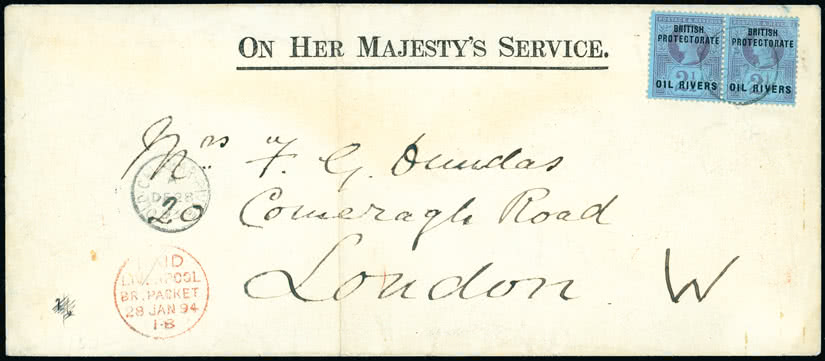 ON HER MAJESTY'S SERVICE.
POSTAGE & REVENUE
BRITISH
PROTECTORATE
2½
OIL RIVERS
POSTAGE & REVENUE
BRITISH
PROTECTORATE
2½
OIL RIVERS
Mrs F. G. Dundas
20 Comeragh Road
London W
A
DE 28
PAID
LIVERPOOL
BR. PACKET
28 JAN 94
1-B